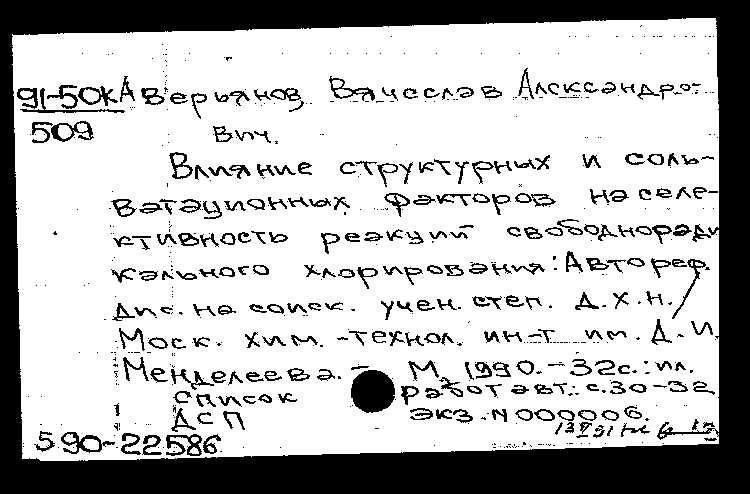 91-50к Аверьянов Вячеслав Александро-
509 вич.
Влияние структурных и соль-
ватационных факторов на селе-
ктивность реакций свободноради
кального хлорирования: Автореф.
дис. на соиск. учен. степ. д.х.н./
Моск. хим.-технол. ин-т им. Д.И.
Менделеева. - М., 1990. - 32с.: ил.
Список работ авт.: с.30-32
ДСП экз. N 000006.
590-22586